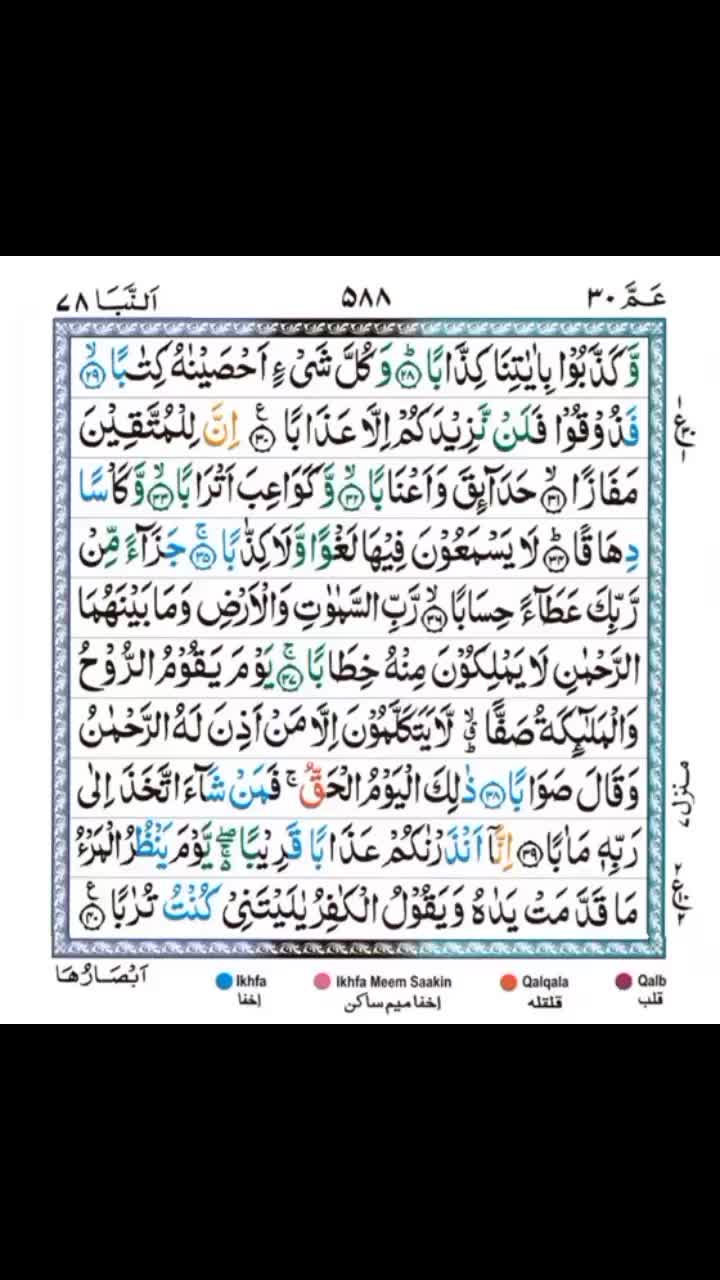 عَمَّ ۳۰
۵۸۸
اَلنَّبَا ۷۸
وَّ كَذَّبُوْا بِاٰيٰتِنَا كِذَّابًا ؕ﴿۲۸﴾ وَ كُلَّ شَیْءٍ اَحْصَيْنٰهُ كِتٰبًا ۙ﴿۲۹﴾
فَذُوْقُوْا فَلَنْ نَّزِيْدَكُمْ اِلَّا عَذَابًا ﴿۳۰﴾ع اِنَّ لِلْمُتَّقِيْنَ
مَفَازًا ۙ﴿۳۱﴾ حَدَآئِقَ وَ اَعْنَابًا ۙ﴿۳۲﴾ وَّ كَوَاعِبَ اَتْرَابًا ۙ﴿۳۳﴾ وَّ كَاْسًا
دِهَاقًا ؕ﴿۳۴﴾ لَا يَسْمَعُوْنَ فِيْهَا لَغْوًا وَّ لَا كِذّٰبًا ۚ﴿۳۵﴾ جَزَآءً مِّنْ
رَّبِّكَ عَطَآءً حِسَابًا ۙ﴿۳۶﴾ رَّبِّ السَّمٰوٰتِ وَ الْاَرْضِ وَ مَا بَيْنَهُمَا
الرَّحْمٰنِ لَا يَمْلِكُوْنَ مِنْهُ خِطَابًا ۚ﴿۳۷﴾ يَوْمَ يَقُوْمُ الرُّوْحُ
وَ الْمَلٰٓئِكَةُ صَفًّا ۙۗ لَّا يَتَكَلَّمُوْنَ اِلَّا مَنْ اَذِنَ لَهُ الرَّحْمٰنُ
وَ قَالَ صَوَابًا ﴿۳۸﴾ ذٰلِكَ الْيَوْمُ الْحَقُّ ۚ فَمَنْ شَآءَ اتَّخَذَ اِلٰى
رَبِّهٖ مَاٰبًا ﴿۳۹﴾ اِنَّاۤ اَنْذَرْنٰكُمْ عَذَابًا قَرِيْبًا ۖۚ يَّوْمَ يَنْظُرُ الْمَرْءُ
مَا قَدَّمَتْ يَدٰهُ وَ يَقُوْلُ الْكٰفِرُ يٰلَيْتَنِیْ كُنْتُ تُرٰبًا ﴿۴۰﴾ع
منزل ۷
اَبْصَارُهَا
Ikhfa
اِخفا
Ikhfa Meem Saakin
اِخفا میم ساکن
Qalqala
قلقله
Qalb
قلب